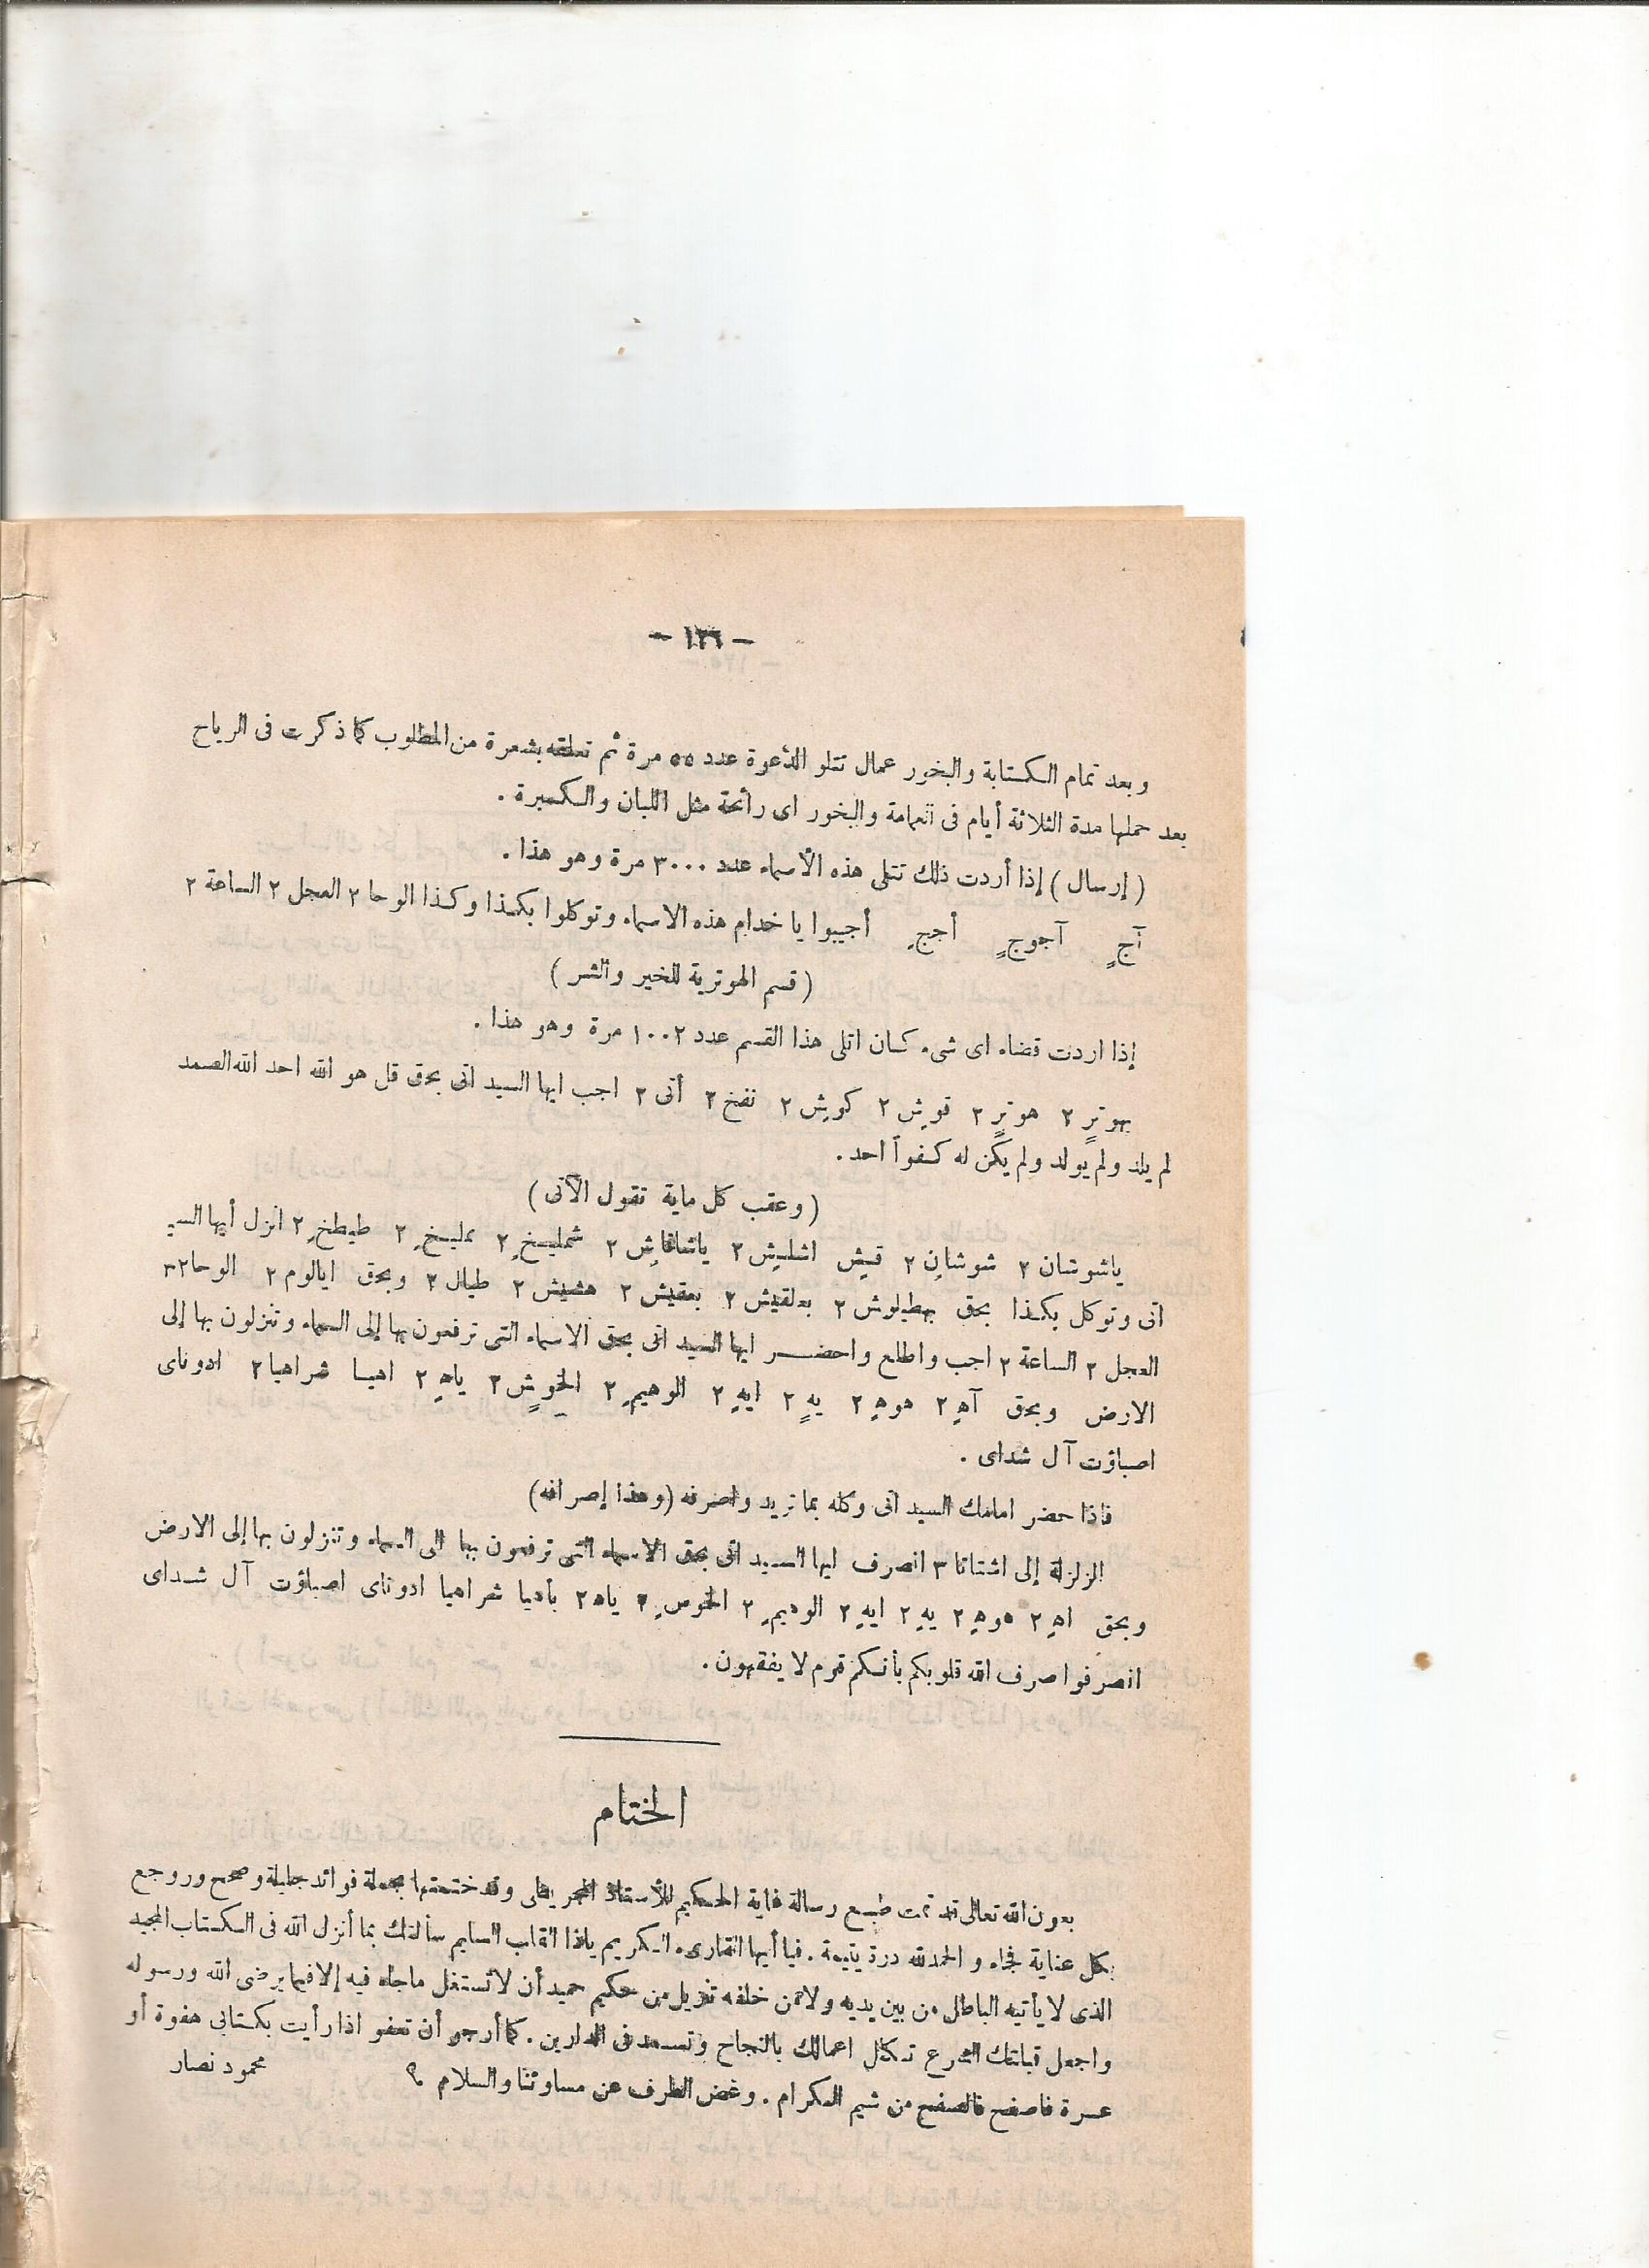 — ١٢٦ —
وبعد تمام الكتابة والبخور عمال تتلو الدعوة عدد ٥٥ مرة ثم تعلقه بشعرة من المطلوب كما ذكرت فى الرياح
بعد حملها مدة الثلاثة أيام فى العمامة والبخور اى رائحة مثل اللبان والكسبرة .
( إرسال ) إذا أردت ذلك تتلى هذه الأسماء عدد ٣٠٠٠ مرة وهو هذا .
آجٍ آجوجٍ أججِ أجيبوا يا خدام هذه الاسماء وتوكلوا بكذا وكذا الوحا ٢ العجل ٢ الساعة ٢
( قسم الهوترية للخير والشر )
إذا اردت قضاء اى شىء كان اتلى هذا القسم عدد ١٠٠٢ مرة وهو هذا .
بهوترٍ ٢ هوترٍ ٢ قوشِ ٢ كوشِ ٢ نفخ ٢ أنى ٢ اجب ايها السيد انى بحق قل هو الله احد الله الصمد
لم يلد ولم يولد ولم يكن له كفواً احد .
( وعقب كل ماية تقول الآتى )
ياشوشان ٢ شوشانِ ٢ قيشِ اشليشِ ٢ ياشاقاشِ ٢ شمليخِ ٢ عليخِ ٢ طيطخِ ٢ انزل أيها السيد
انى وتوكل بكذا بحق بهطيلوش ٢ بعلقيش ٢ بعقيش ٢ هشيش ٢ طيال ٢ وبحق ايالوم ٢ الوحا ٢٣
العجل ٢ الساعة ٢ اجب واطلع واحضر ايها السيد انى بحق الاسماء التى ترفعون بها إلى السماء وتنزلون بها إلى
الارض وبحق آهٍ ٢ هوهٍ ٢ يهٍ ٢ ايهٍ ٢ الوهيمِ ٢ الخوشٍ ٢ ياهٍ ٢ اهيا شراهيا ٢ ادوناى
اصباؤت آل شداى .
فاذا حضر امامك السيد انى وكله بما تريد واصرفه (وهذا إصرافه)
الزلزلة إلى اشتاتا ٣ انصرف ايها السيد انى بحق الاسماء التى ترفعون بها الى السماء وتنزلون بها إلى الارض
وبحق اهٍ ٢ هوهٍ ٢ يهٍ ٢ ايهٍ ٢ الوهيمِ ٢ الخوسِ ٢ ياه ٢ باهيا شراهيا ادوناى اصباؤت آل شداى
انصرفوا صرف الله قلوبكم بأنكم قوم لا يفقهون .
الختام
بعون الله تعالى قد تمت طبع رسالة غاية الحكيم للأستاذ المجريطى وقد ختمتها بجملة فوائد جليلة وصحح وروجع
بكل عناية فجاء والحمد لله درة يتيمة . فيا أيها القارىء الكريم ياذا القلب السليم سألتك بما أنزل الله فى الكتاب المجيد
الذى لا يأتيه الباطل من بين يديه ولا من خلفه تنزيل من حكيم حميد أن لا تستغل ماجاء فيه إلا فيما يرضى الله ورسوله
واجعل قبلتك الشرع تكلل اعمالك بالنجاح وتسعد فى الدارين . كما أرجو أن تعفو اذا رأيت بكتابى هفوة أو
عسرة فاصفح فالصفح من شيم الكرام . وغض الطرف عن مساوئنا والسلام ؟ محمود نصار